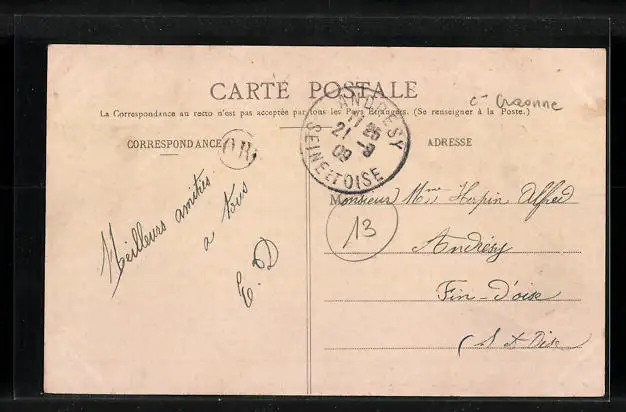 CARTE POSTALE
cⁿ Craonne
La Correspondance au recto n'est pas acceptée par tous les Pays Étrangers. (Se renseigner à la Poste.)
ANDRESY
11 25
21 -9
09
SEINE ET OISE
CORRESPONDANCE
OR
ADRESSE
Meilleurs amitiés
a tous
E. D
Monsieur Mme Herpin Alfred
13
Andrésy
Fin-d'oise
(S et Oise